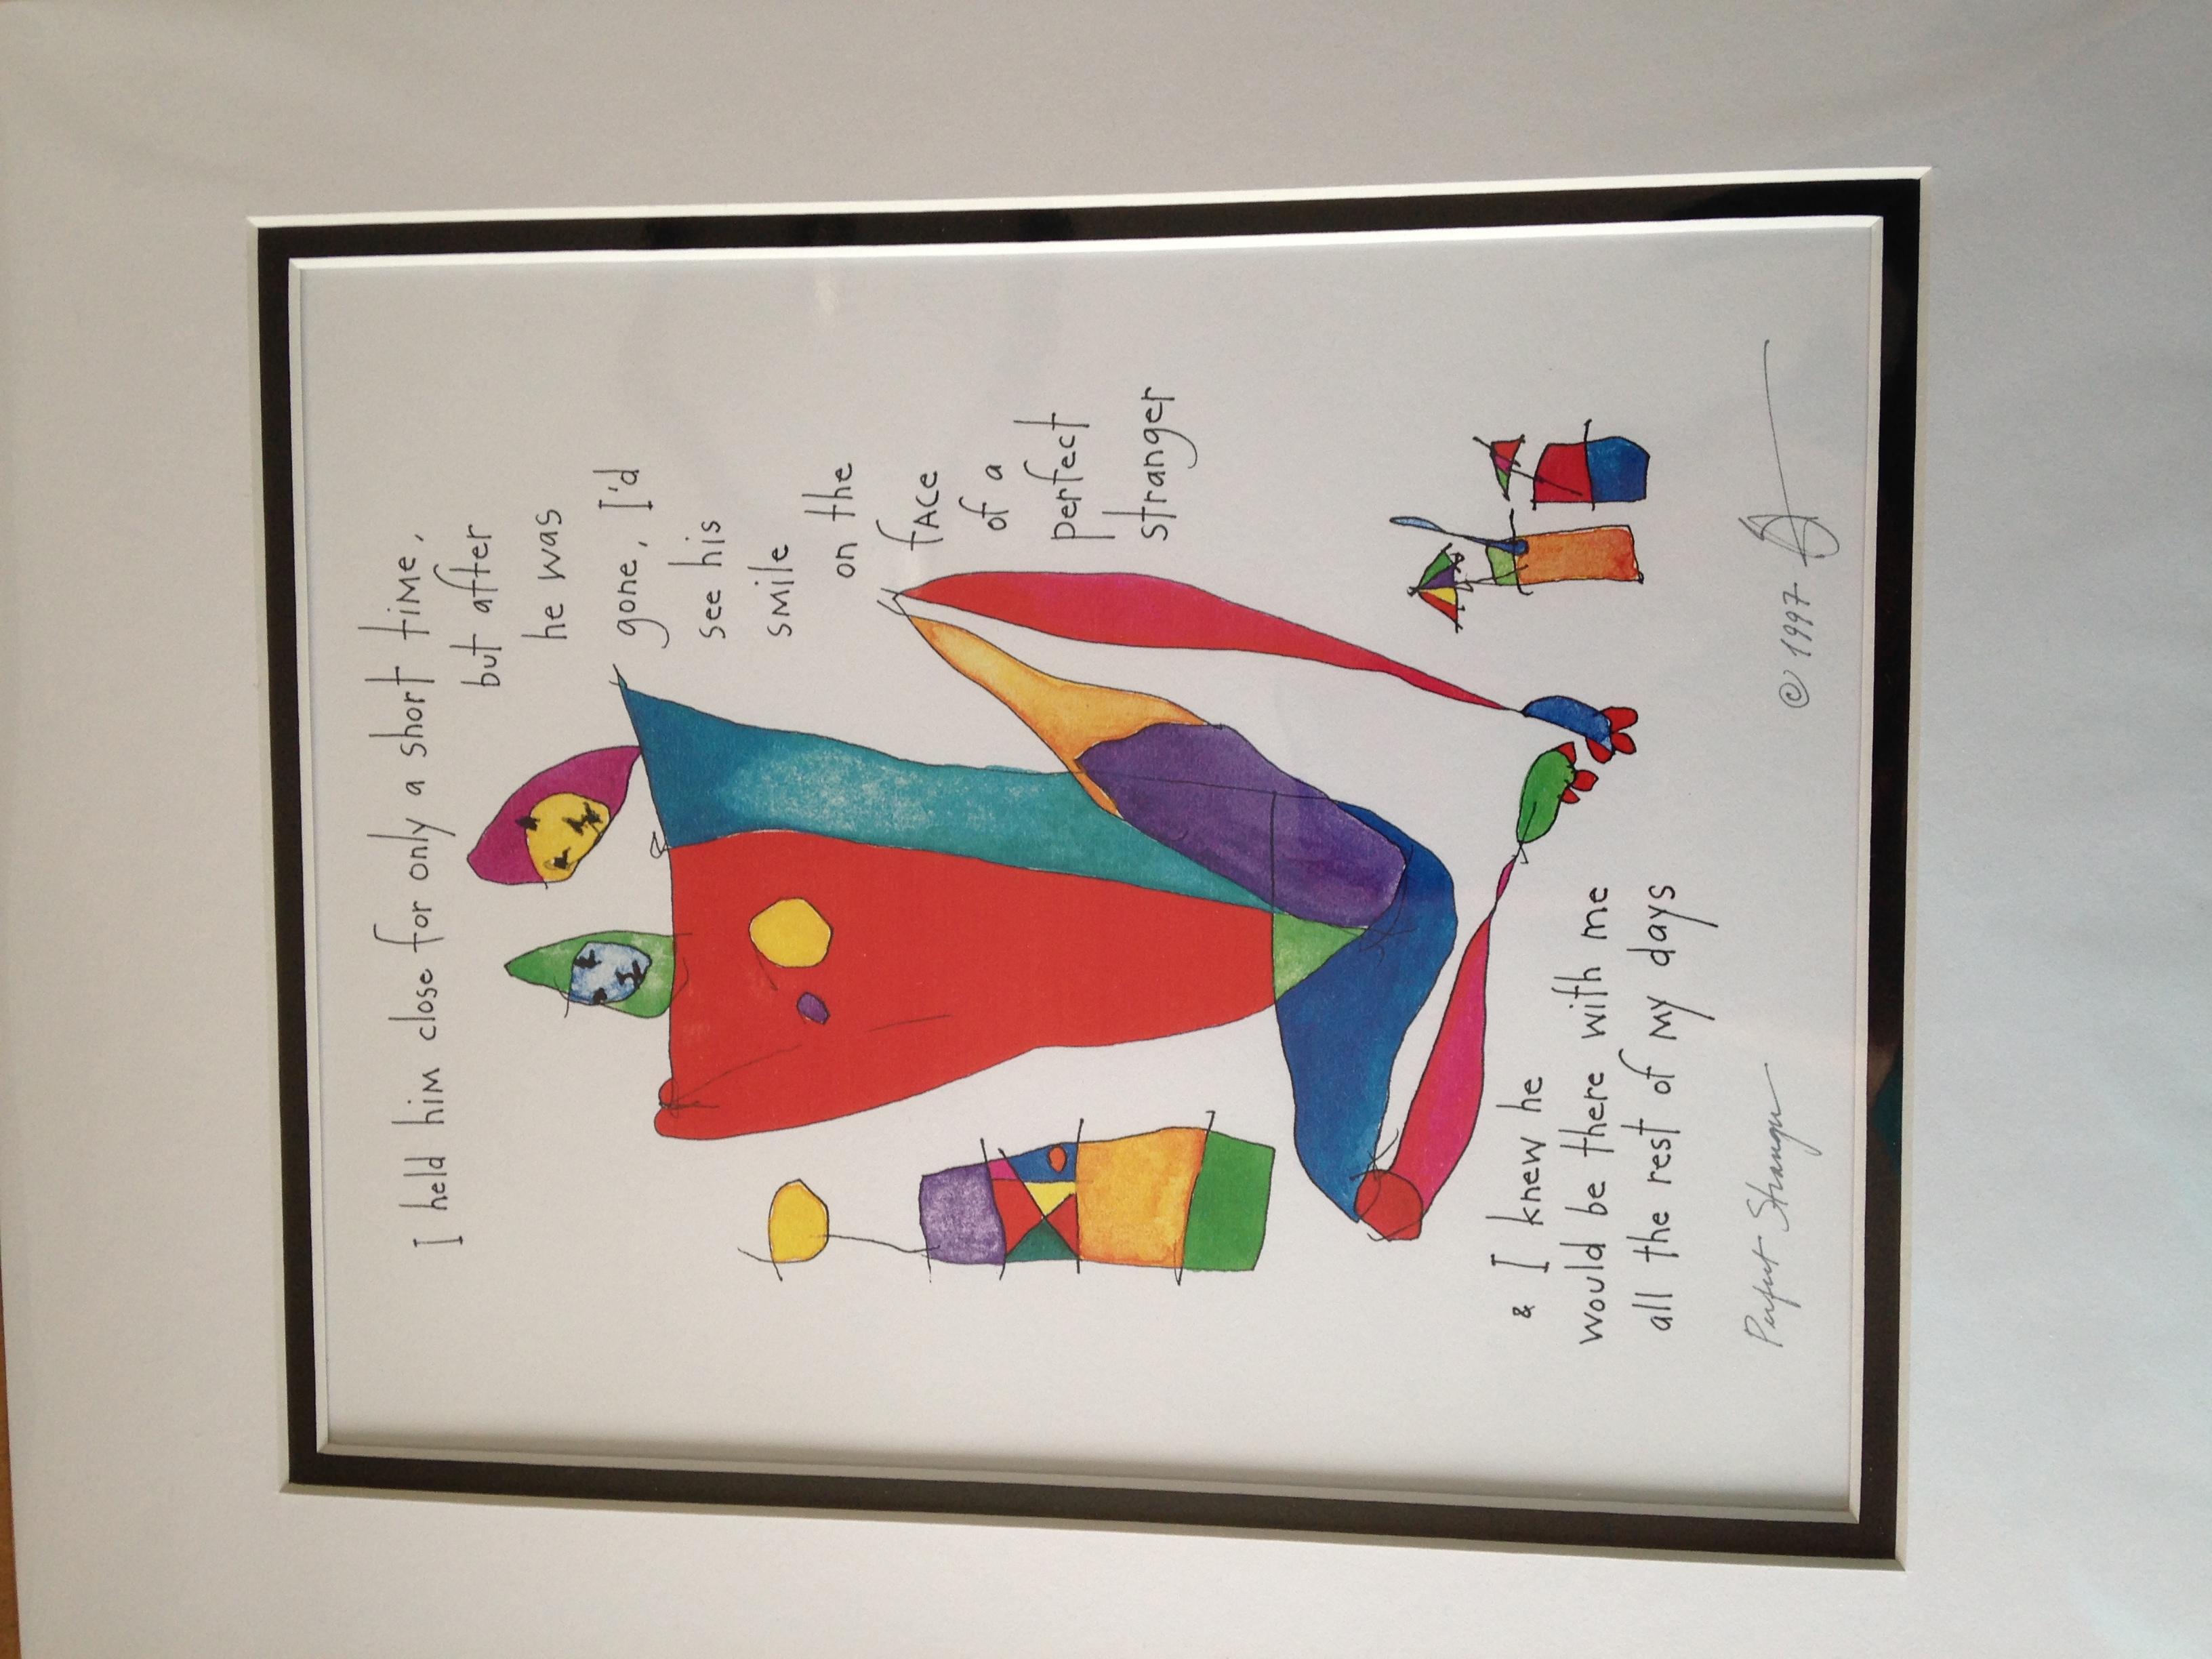 I held him close for only a short time,
but after
he was
gone, I'd
see his
smile
on the
face
of a
perfect
stranger
& I knew he
would be there with me
all the rest of my days
Perfect Stranger
© 1997